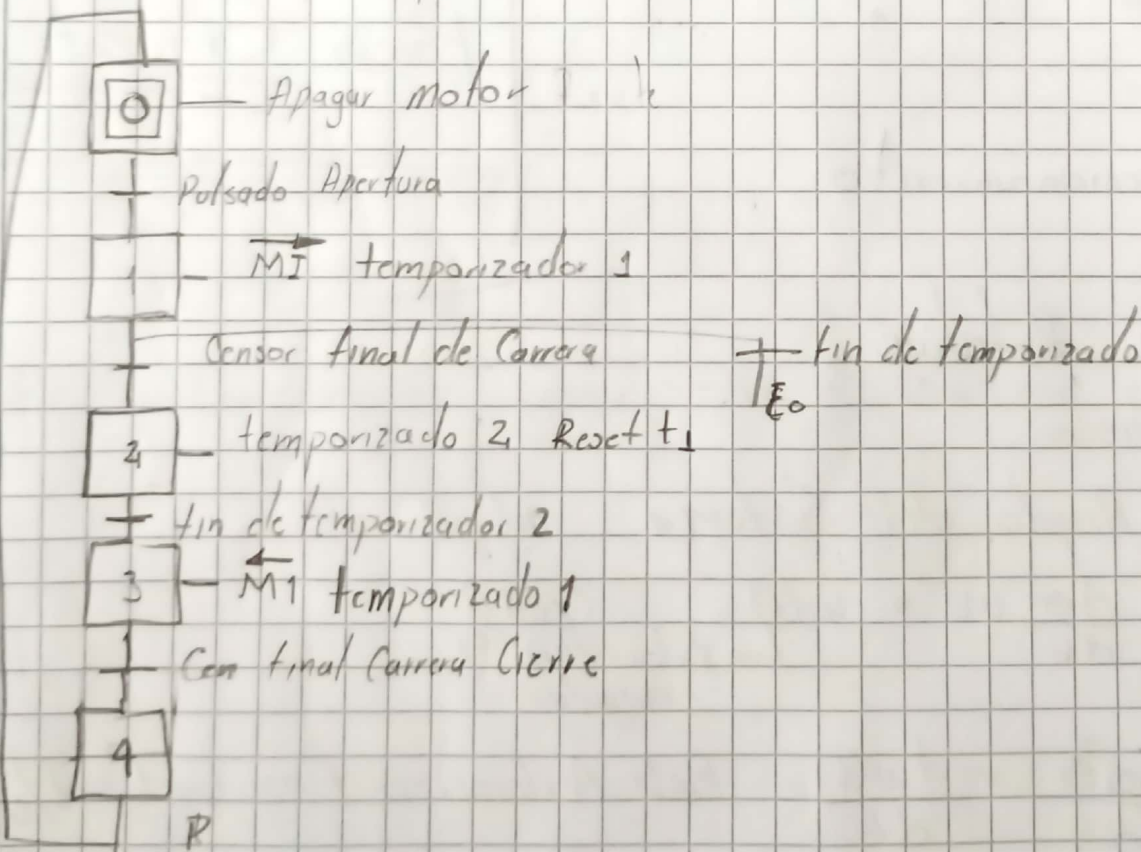 0 Apagar motor
Pulsado Apertura
1 MI temporizador 1
Censor final de Carrera fin de temporizado
E0
2 temporizado 2 Reset t1
fin de temporizador 2
3 M1 temporizado 1
Cen final Carrera Cierre
4
R